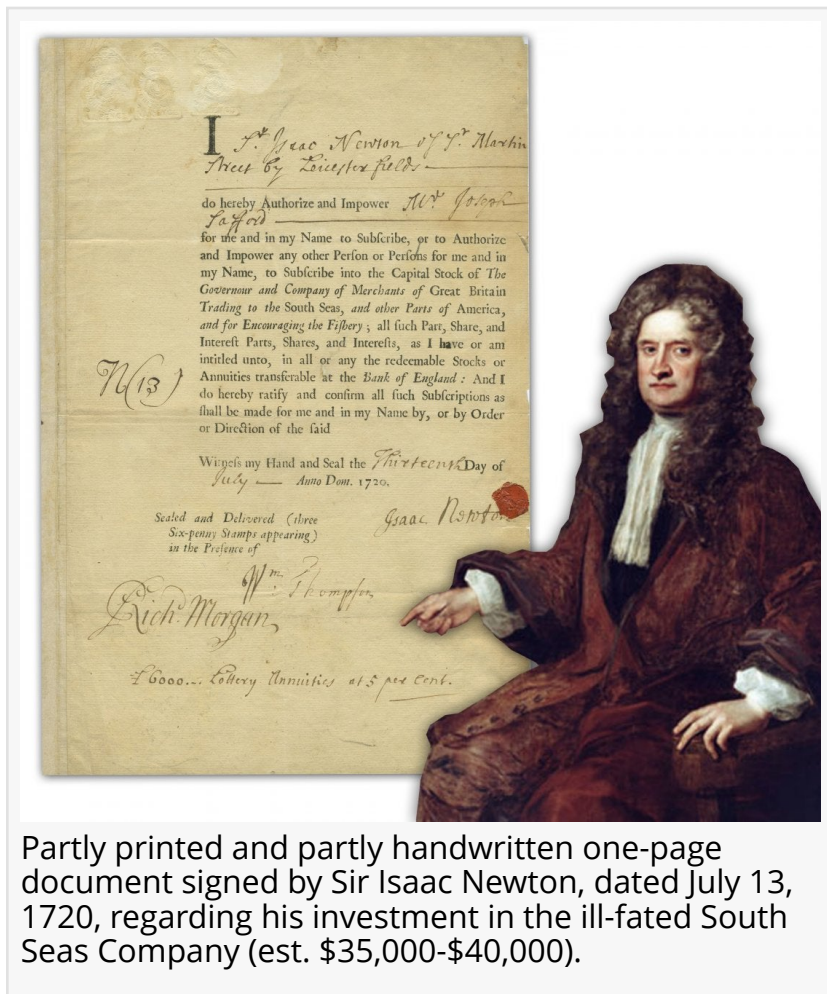 I Sr. Isaac Newton of St. Martin
Street by Leicester fields
do hereby Authorize and Impower Mr. Joseph
Safford
for me and in my Name to Subſcribe, or to Authorize
and Impower any other Perſon or Perſons for me and in
my Name, to Subſcribe into the Capital Stock of The
Governour and Company of Merchants of Great Britain
Trading to the South Seas, and other Parts of America,
and for Encouraging the Fiſhery ; all ſuch Part, Share, and
Intereſt Parts, Shares, and Intereſts, as I have or am
intitled unto, in all or any the redeemable Stocks or
Annuities transferable at the Bank of England : And I
do hereby ratify and confirm all ſuch Subſcriptions as
ſhall be made for me and in my Name by, or by Order
or Direction of the ſaid
N(13)
Witneſs my Hand and Seal the Thirteenth Day of
July Anno Dom. 1720.
Isaac Newton
Sealed and Delivered (three
Six-penny Stamps appearing)
in the Preſence of
Wm. Thompson
Richd. Morgan
£6000... Lottery Annuities at 5 per Cent.
Partly printed and partly handwritten one-page
document signed by Sir Isaac Newton, dated July 13,
1720, regarding his investment in the ill-fated South
Seas Company (est. $35,000-$40,000).